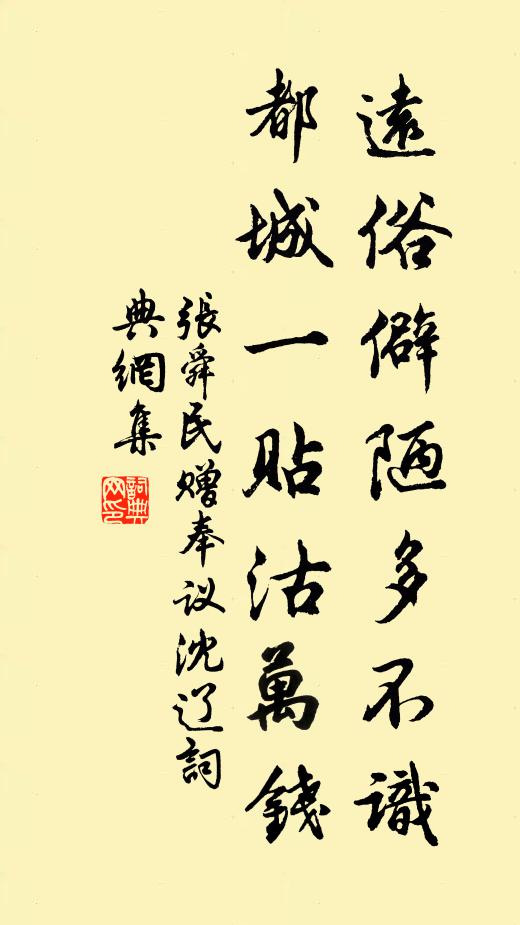 遠俗僻陋多不識
都城一貼沽萬錢
張舜民赠奉议沈辽詞
典網集
詞典网印